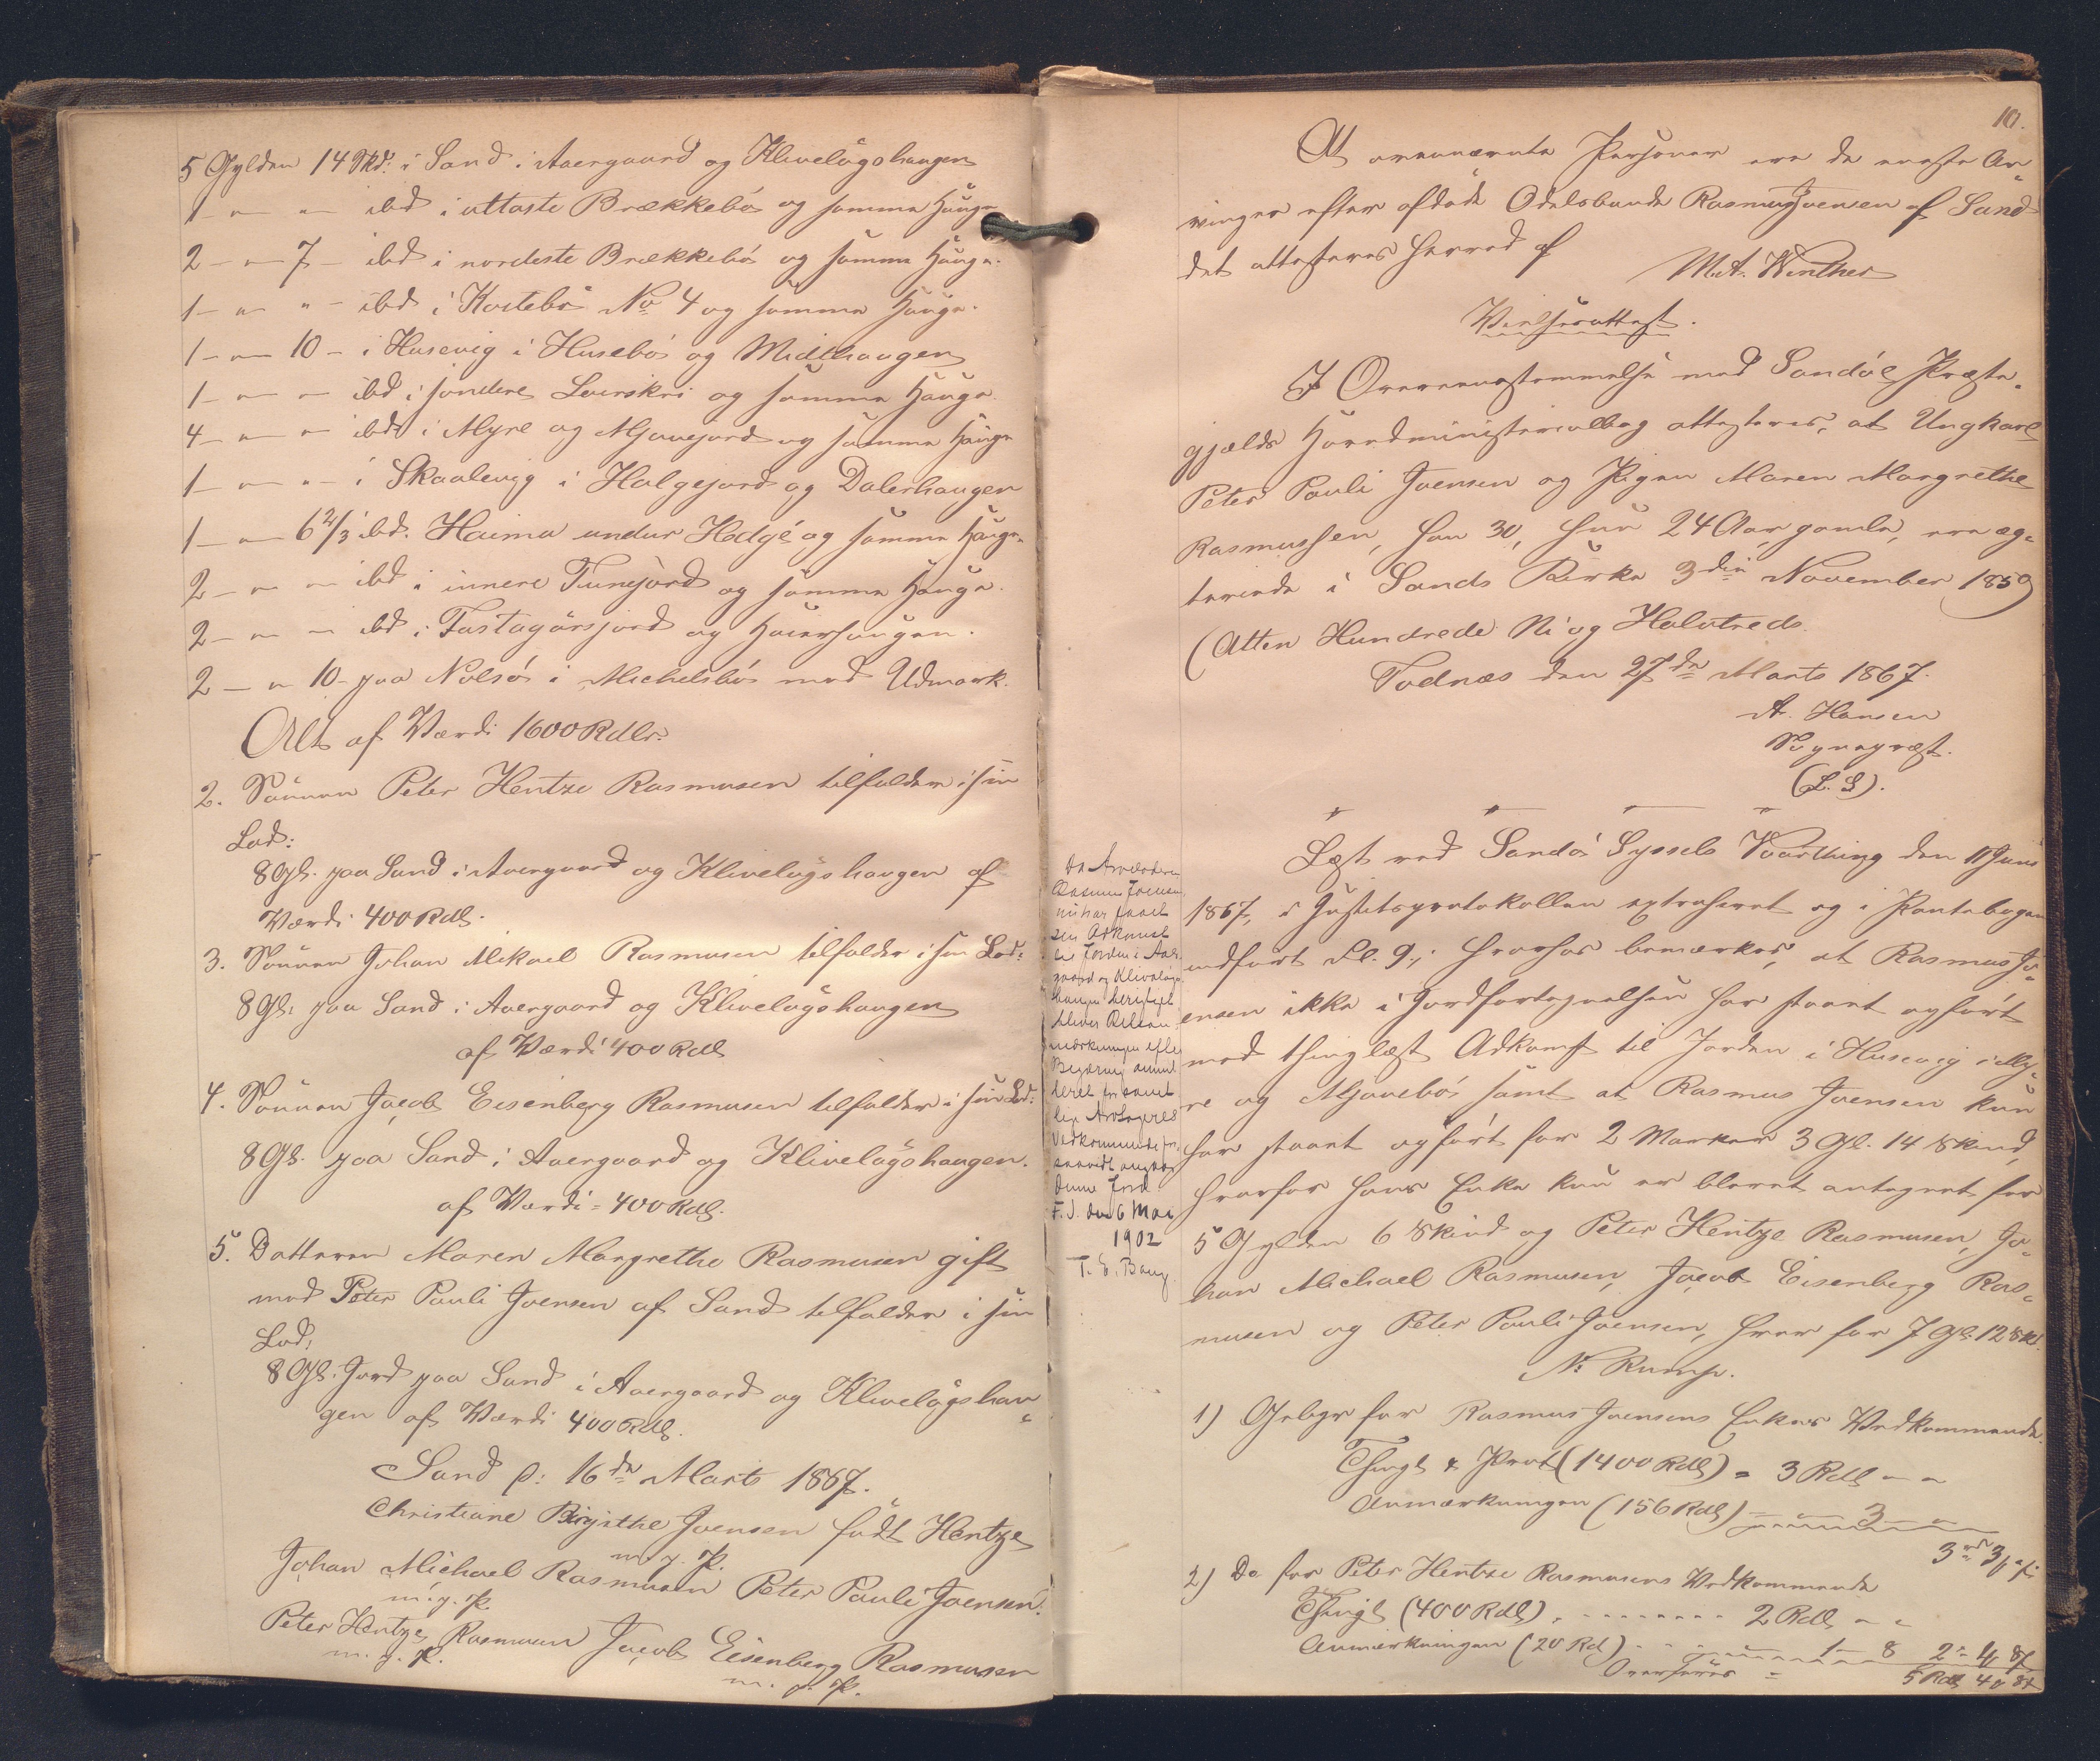 5 Gylden 14 Skd: i Sand i Aaergaard og Kliveløgshaugen
1 – " – " – ibd i uttaste Brækkebø og samme Hauge
2 – " – 7 – ibd i nordeste Brækkebø og samme Hauge.
1 – " – " – ibd i Kostebø No 4 og samme Hauge.
1 – " – 10 – i Husevig i Husebø og Midthaugen
1 – " – " – ibd i søndere Leirskri og samme Hauge.
4 – " – " – ibd i Myre og Mjavejord og samme Hauge
1 – " – " – i Skaalevig i Halgejord og Dalerhaugen
1 – " – 6 2/3 ibd. Haima undur Hødgé og samme Hauge.
2 – " – " – ibd i innere Tunejord og samme Hauge.
2 – " – " – ibd i Tustagarsjord og
2 – " – 10 – paa Nolsø i Michelsbø med Udmark.
Alt af Værdi 1600 Rdlr.
2. Sønnen Peter Hentze Rasmusen tilfalder i sin
Lod:
8 Gl. paa Sand i Aaergaard og Kliveløgshaugen af
Værdi 400 Rdl.
3. Sønnen Johan Mikael Rasmusen tilfalder i sin Lod:
8 Gl. paa Sand i Aaergaard og Kliveløgshaugen
af Værdi 400 Rdl
4. Sønnen Jacob Eisenberg Rasmusen tilfalder i sin Lod:
8 Gl. paa Sand i Aaergaard og Kliveløgshaugen.
af Værdi = 400 Rdl.
5. Datteren Maren Margrethe Rasmusen gift
med Peter Pauli Joensen af Sand tilfalder i sin
Lod:
8 Gl. Jord paa Sand i Aaergaard og Kliveløgshau-
gen af Værdi 400 Rdl.
Sand d: 16de Marts 1867.
Christiane Birgithe Joensen født Hentze
m. g. P.
Johan Michael Rasmusen Peter Pauli Joensen.
m. g. P.
Peter Hentze Rasmusen Jacob Eisenberg Rasmusen
m. g. P.
m. g. P.
10.
At ovennævnte Personer ere de eneste Ar-
vinger efter afdøde Odelsbonde Rasmus Joensen af Sand
det attesteres herved af
M. A. Winther
Vielsesattest.
I Overeensstemmelse med Sandøes Præste-
gjælds Hovedministerialbog attesteres, at Ungkarl
Peter Pauli Joensen og Pigen Maren Margrethe
Rasmussen, han 30, hun 24 Aar gamle, ere æg-
teviede i Sands Kirke 3die November 1859
(Atten Hundrede Ni og Halvtreds.
Todnæs den 27de Marts 1867.
A. Hansen
Sognepræst.
(L. S).
Læst ved Sandø Syssels Vaarthing den 11 Juni
1867, i Justitsprotokollen extraheret og i Pantebogen
indført Fol. 9; hvorhos bemærkes, at Rasmus Jo-
ensen ikke i Jordfortegnelsen har staaet opført
med thinglæst Adkomst til Jorden i Husevig i My-
re og Mjavebø samt at Rasmus Joensen kun
har staaet opført for 2 Marker 3 Gl. 14 Skind,
hvorfor hans Enke kun er blevet antegnet for
5 Gylden 6 Skind og Peter Hentze Rasmusen, Jo-
han Michael Rasmusen, Jacob Eisenberg Ras-
musen og Peter Pauli Joensen, hver for 7 Gl. 12 Sk.
N. Rump.
1) Gebyr for Rasmus Joensens Enkes Vedkommende.
Thingl & Prot (1400 Rdl) = 3 Rdl " "
Anmærkningen (156 Rdl) – 3 –
3 rd 3
2) Do for Peter Hentze Rasmusens Vedkommende
Thingl (400 Rdl) . - - - - - - - 2 Rdl " "
Anmærkningen (20 Rd) - - 1 – 8
Overføres =
5 Rdl
Da Arveladeren
Rasmus Joensen
nu har faaet
sin Adkomst
til Jorden i Aaer-
gaard og Kliveløgs-
haugen berigtiget
bliver
mærkningen efter
Begæring
for samt-
lige
Vedkommende for
saavidt angaar
denne Jord
F. S. den 6 Mai
1902
T. E. Bang